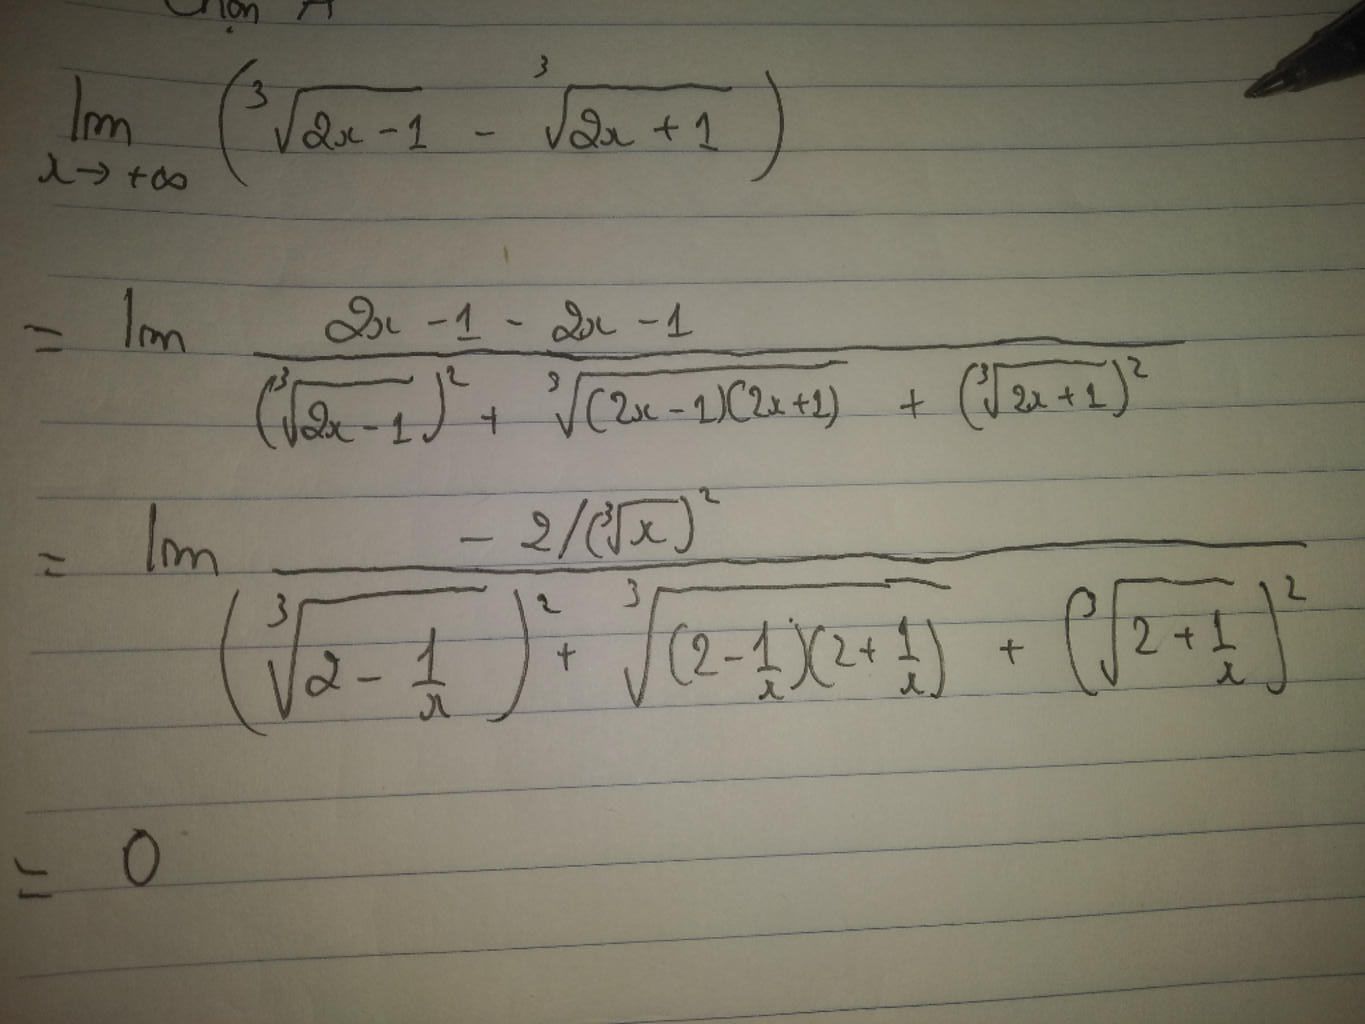 Chọn A
lim x→+∞ (∛(2x-1) - ∛(2x+1))
= lim (2x-1-2x-1) / ((∛(2x-1))² + ∛((2x-1)(2x+1)) + (∛(2x+1))²)
= lim (-2/(∛x)²) / ((∛(2-1/x))² + ∛((2-1/x)(2+1/x)) + (∛(2+1/x))²)
= 0